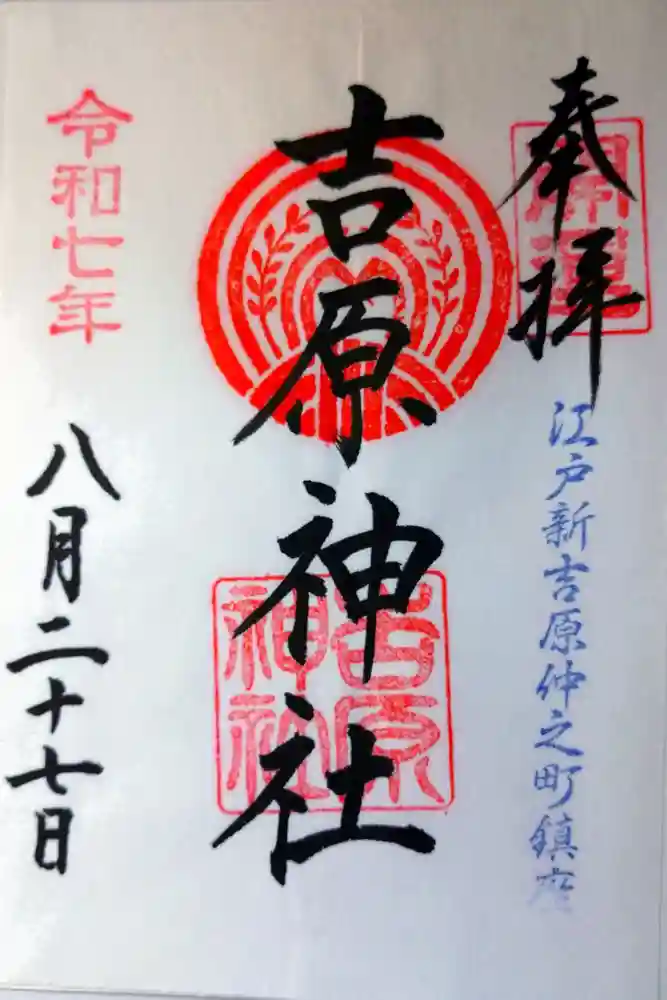 奉拝
開運
江戸新吉原仲之町鎮座
吉原神社
吉原神社
令和七年
八月二十七日